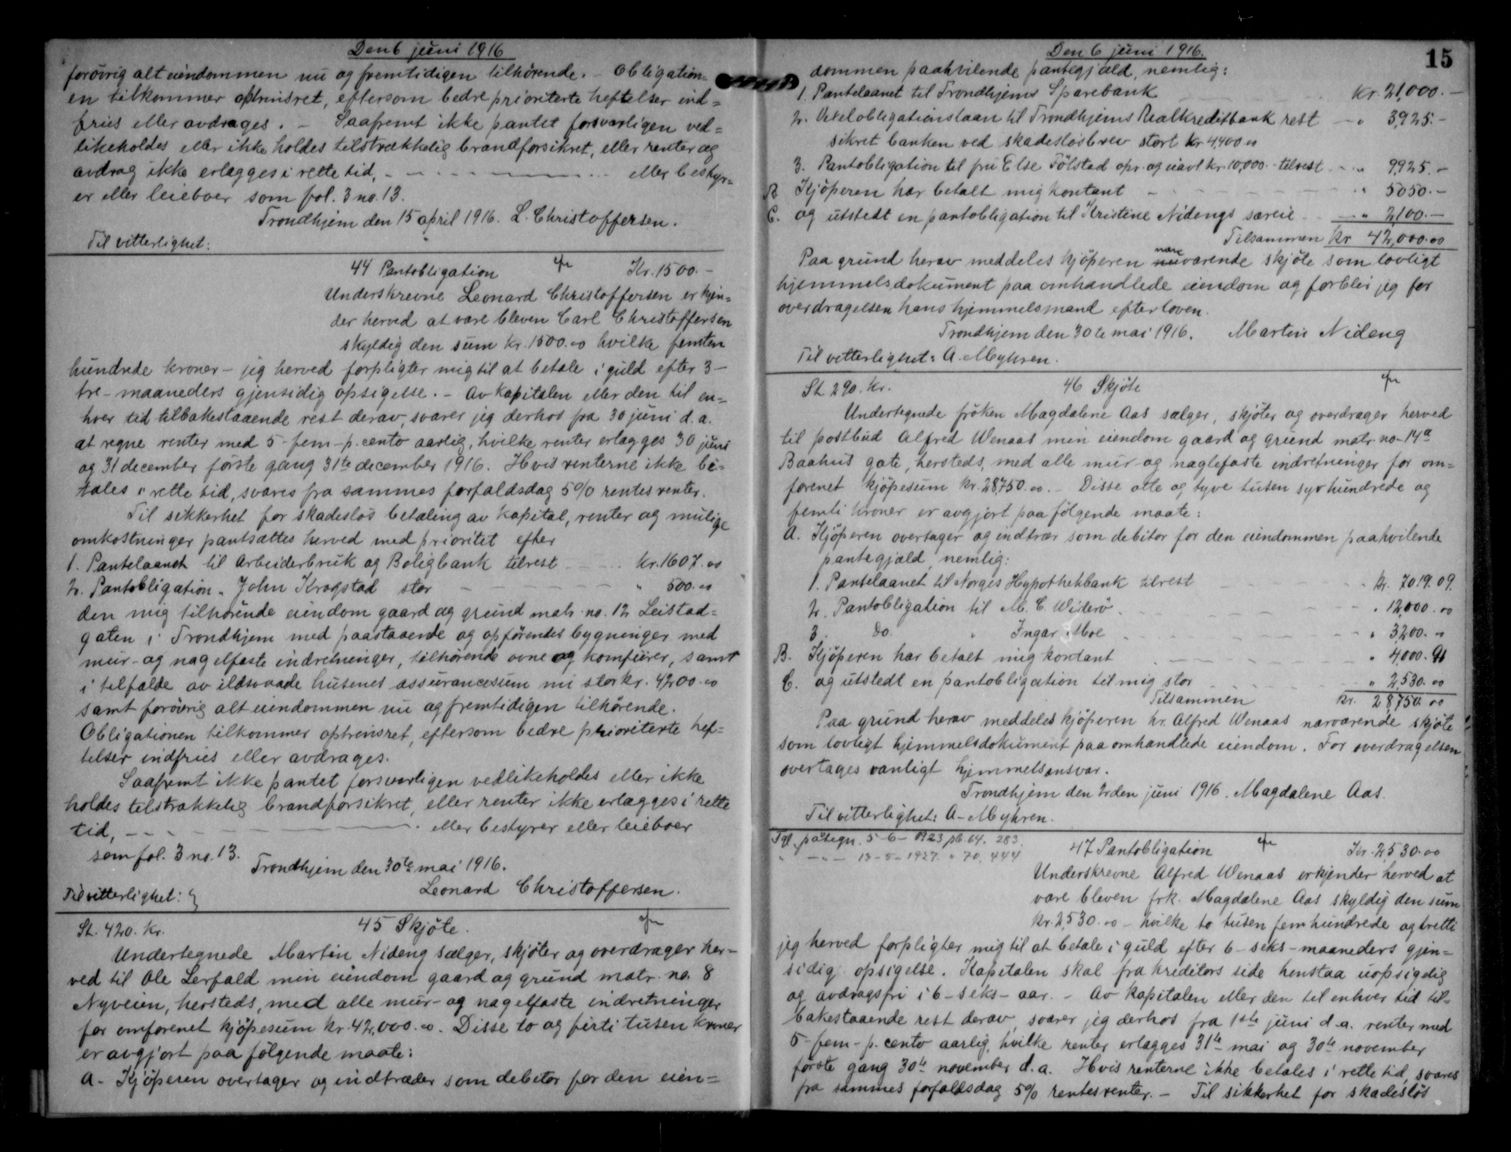 Den 6 juni 1916
forøvrig alt eiendommen nu og fremtidigen tilhørende. – Obligation=
en tilkommer optrinsret, eftersom bedre prioriterte heftelser ind=
fries eller avdrages. – Saafremt ikke pantet forsvarligen ved=
likeholdes eller ikke holdes tilstrækkelig brandforsikret, eller renter og
avdrag ikke erlægges i rette tid, – – – – – eller bestyr=
er eller leieboer som fol. 3 no. 13.
Trondhjem den 15 april 1916. L. Christoffersen.
Til vitterlighet:
44 Pantobligation Kr. 1500.–
Underskrevne Leonard Christoffersen erkjen=
der herved at være bleven Carl Christoffersen
skyldig den sum kr. 1500.00 hvilke femten
hundrede kroner – jeg herved forpligter mig til at betale i guld efter 3–
tre – maaneders gjensidig opsigelse. – Av kapitalen eller den til en=
hver tid tilbakestaaende rest derav, svarer jeg derhos fra 30 juni d. a.
at regne renter med 5 – fem – p. cento aarlig, hvilke renter erlægges 30 juni
og 31 december første gang 31te december 1916. Hvis renterne ikke be=
tales i rette tid, svares fra sammes forfaldsdag 5% rentesrenter.
Til sikkerhet for skadesløs betaling av kapital, renter og mulige
omkostninger pantsættes herved med prioritet efter
1. Pantelaanet til Arbeiderbruk og Boligbank tilrest – – kr. 1607.00
2. Pantobligation " John Krogstad stor – – " 500.00
den mig tilhørende eiendom gaard og grund matr. no. 12 Leistad=
gaten i Trondhjem med paastaaende og opførendes bygninger med
mur- og nagelfaste indretninger, tilhørende ovne og komfurer, samt
i tilfælde av ildsvaade husenes assurancesum nu stor kr. 4200.00
samt forøvrig alt eiendommen nu og fremtidigen tilhørende.
Obligationen tilkommer optrinsret, eftersom bedre prioriterte hef=
telser indfries eller avdrages.
Saafremt ikke pantet forsvarligen vedlikeholdes eller ikke
holdes tilstrækkelig brandforsikret, eller renter ikke erlægges i rette
tid, – – – – – eller bestyrer eller leieboer
som fol. 3 no. 13.
Trondhjem den 30te mai 1916.
Leonard Christoffersen.
Til vitterlighet:
St. 420. kr. 45 Skjøte.
Undertegnede Martin Nideng sælger, skjøter og overdrager her=
ved til Ole Lerfald min eiendom gaard og grund matr. no. 8
Nyveien, hersteds, med alle mur- og nagelfaste indretninger
for omforenet kjøpesum kr. 42,000.00. Disse to og firti tusen kroner
er avgjort paa følgende maate:
A. Kjøperen overtager og indtræder som debitor for den eien=
15
Den 6 juni 1916.
dommen paahvilende pantegjæld, nemlig:
1. Pantelaanet til Trondhjems Sparebank kr. 21,000.–
2. Vexelobligationslaan til Trondhjems Realkreditbank rest – " 3,925.–
sikret banken ved skadesløsbrev stort kr 4400.00
3. Pantobligation til fru Else Tølstad opr. og uavl kr. 10,000.– tilrest – " 9925.–
B. Kjøperen har betalt mig kontant – – – " 5050.–
C. og utstedt en pantobligation til Kristine Nidengs særeie – " 2,100.–
Tilsammen kr 42,000.00
Paa grund herav meddeles kjøperen nærværende skjøte som lovligt
hjemmelsdokument paa omhandlede eiendom og forblir jeg for
overdragelsen hans hjemmelsmand efter loven.
Trondhjem den 30te mai 1916. Martin Nideng
Til vitterlighet: A. Myhren.
St. 290. kr. 46 Skjøte
Undertegnede frøken Magdalene Aas sælger, skjøter og overdrager herved
til postbud Alfred Wenaas min eiendom gaard og grund matr. no. 14a
Baahus gate, hersteds, med alle mur- og naglefaste indretninger for om=
forenet kjøpesum kr. 28750.00. – Disse otte og tyve tusen syvhundrede og
femti kroner er avgjort paa følgende maate:
A. Kjøperen overtager og indtrær som debitor for den eiendommen paahvilende
pantegjæld, nemlig:
1. Pantelaanet til Norges Hypothekbank tilrest – – kr. 7019.09.
2. Pantobligation til M. C. Widerø – – " 12,000.00
3. Do. " Ingar Moe – – " 3,200.00
B. Kjøperen har betalt mig kontant – – " 4,000.91
C. og utstedt en pantobligation til mig stor – – " 2,530.00
Tilsammen kr. 28,750.00
Paa grund herav meddeles kjøperen hr. Alfred Wenaas nærværende skjøte
som lovligt hjemmelsdokument paa omhandlede eiendom. For overdragelsen
overtages vanligt hjemmelsansvar.
Trondhjem den 2den juni 1916. Magdalene Aas.
Til vitterlighet: A. Myhren.
Tgl. påtegn. 5-6-1923 pb 64. 283.
" – – 13-5-1927 " 70, 444
47 Pantobligation Kr. 2530.00
Underskrevne Alfred Wenaas erkjender herved at
være bleven frk. Magdalene Aas skyldig den sum
kr. 2530.00 – hvilke to tusen femhundrede og tretti
jeg herved forpligter mig til at betale i guld efter 6 – seks – maaneders gjen=
sidig opsigelse. Kapitalen skal fra kreditors side henstaa uopsigelig
og avdragsfri i 6 – seks – aar. – Av kapitalen eller den til enhver tid til=
bakestaaende rest derav, svarer jeg derhos fra 1ste juni d. a. renter med
5 – fem – p. cento aarlig, hvilke renter erlægges 31te mai og 30te november
første gang 30te november d. a. Hvis renterne ikke betales i rette tid, svares
fra sammes forfaldsdag 5% rentesrenter. – Til sikkerhet for skadesløs